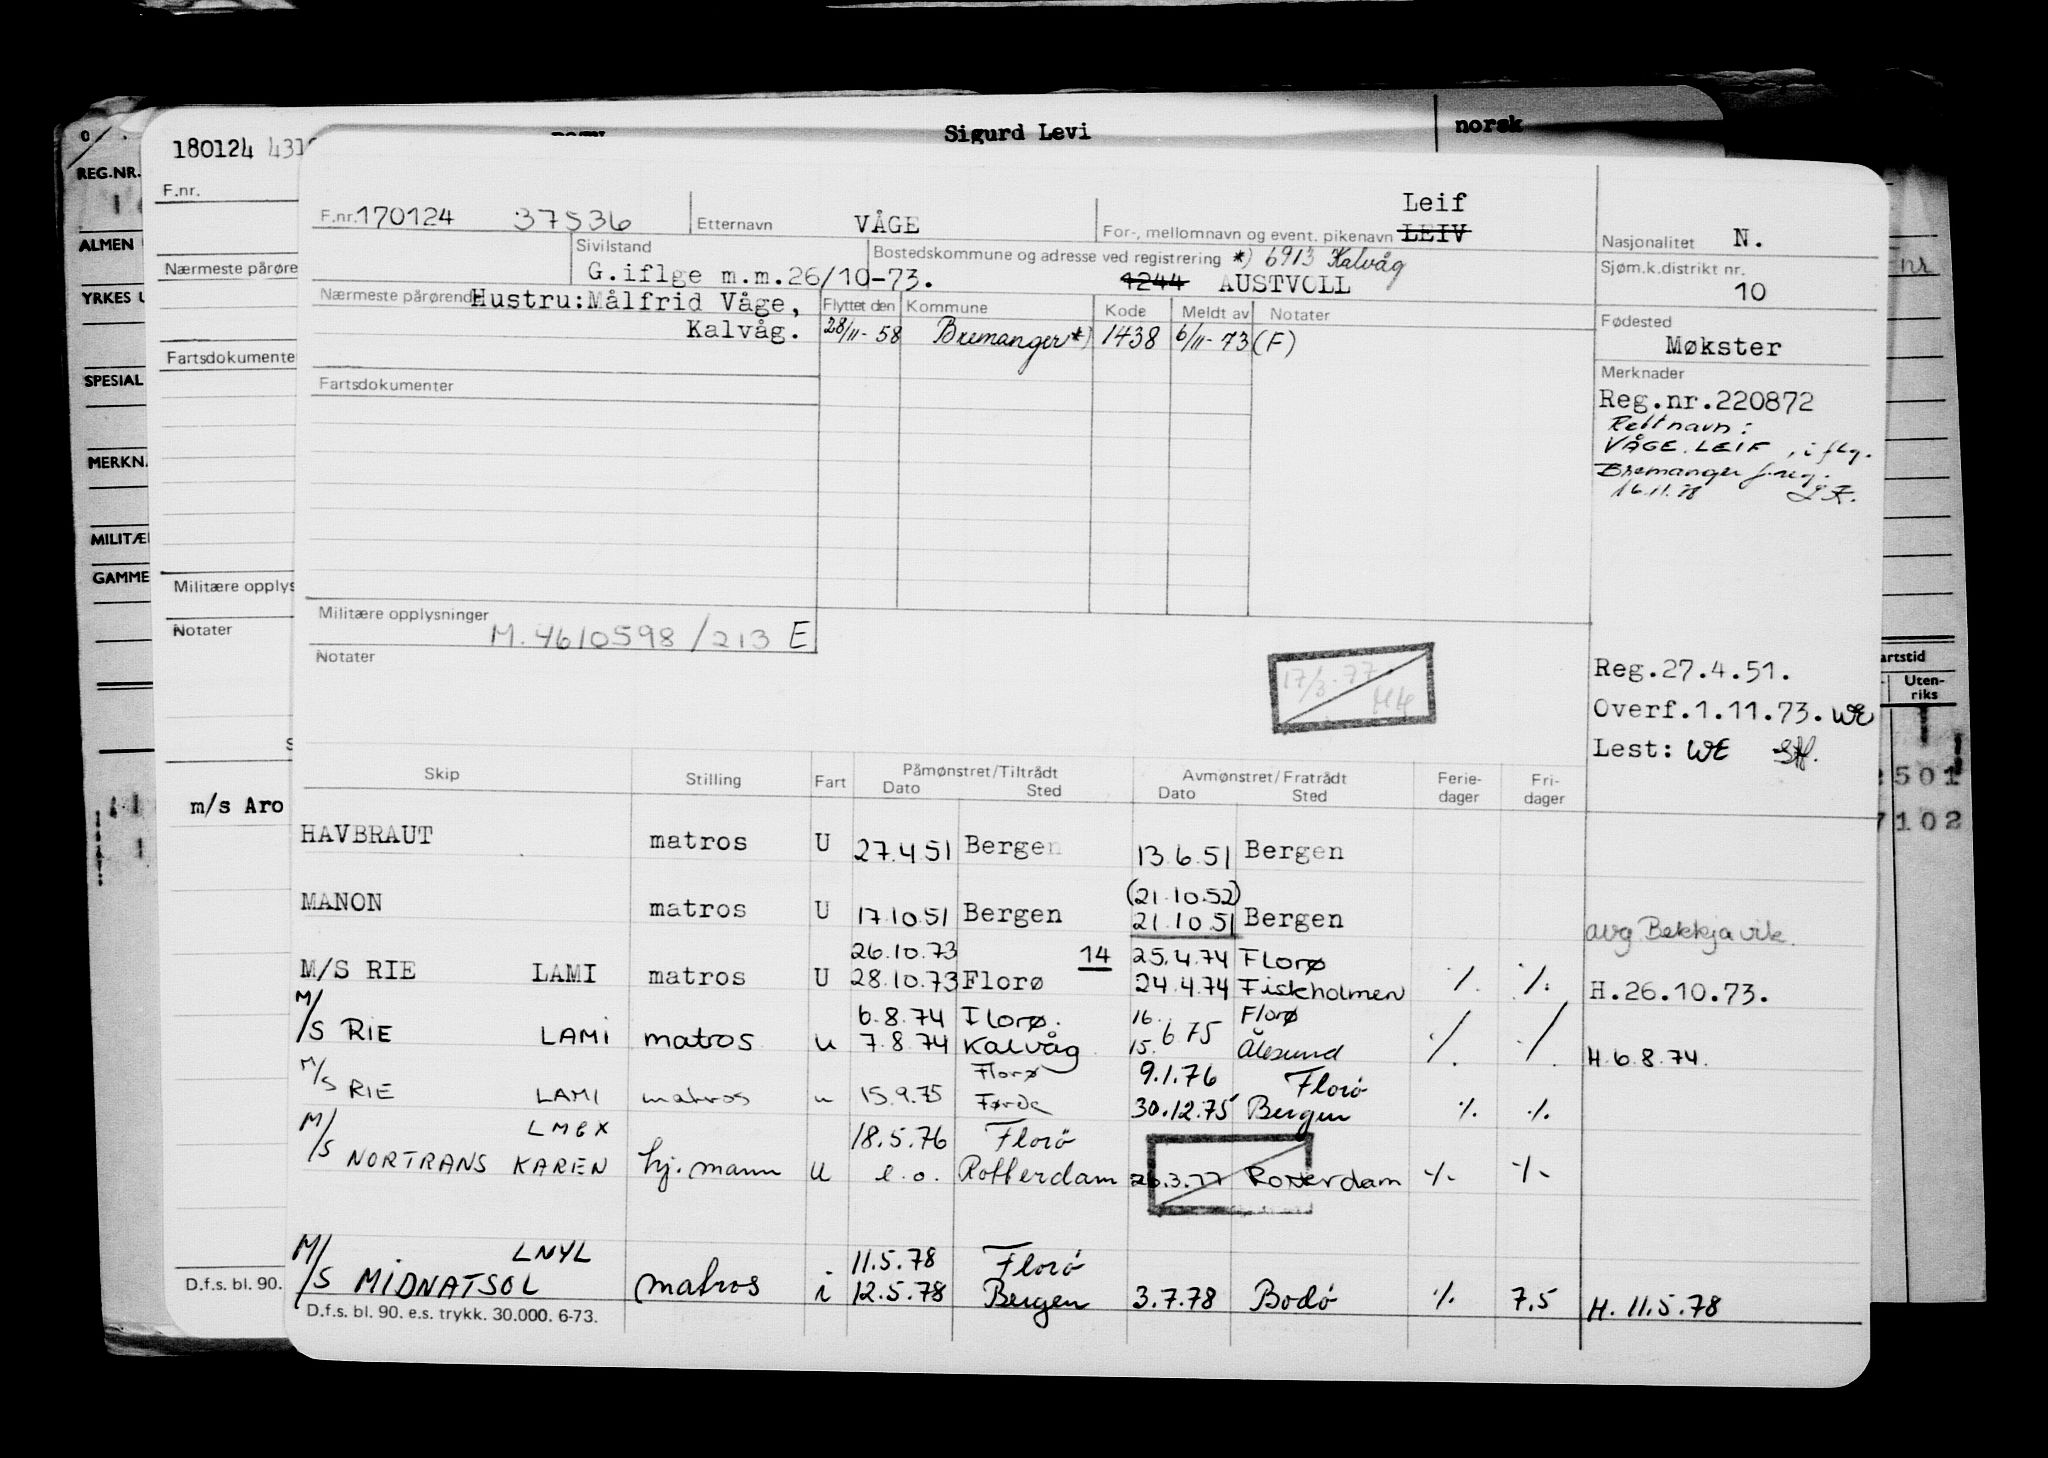 Sigurd Levi
norsk
180124
F.nr.
REG.NR.
ALMEN
Nærmeste pårøre
YRKES
Fartsdokumente
SPESIAL
MERKN
MILITÆ
GAMME
Militære opplys
Notater
m/s Aro
D.f.s. bl. 90.
F.nr. 170124 37536
Etternavn VÅGE
For-, mellomnavn og event. pikenavn Leif LEIV
Nasjonalitet N.
Sivilstand
G.iflge m.m.26/10-73.
Bostedskommune og adresse ved registrering *) 6913 Kalvåg
1244 AUSTVOLL
Sjøm.k.distrikt nr.
10
Nærmeste pårørende Hustru:Målfrid Våge,
Kalvåg.
Flyttet den Kommune Kode Meldt av Notater
28/11-58 Bremanger *) 1438 6/11-73 (F)
Fødested
Møkster
Merknader
Reg.nr.220872
Rett navn:
VÅGE. LEIF, iflg.
Bremanger f.reg.
16.11.78
Fartsdokumenter
Militære opplysninger
M.4610598/213 E
Notater
17/3-77
Reg.27.4.51.
Overf.1.11.73. WE
Lest: WE
Skip Stilling Fart Påmønstret/Tiltrådt Avmønstret/Fratrådt Ferie- Fri-
Dato Sted Dato Sted dager dager
HAVBRAUT matros U 27.4.51 Bergen 13.6.51 Bergen
(21.10.52)
MANON matros U 17.10.51 Bergen 21.10.51 Bergen avg Bekkjavik.
26.10.73 14 25.4.74 Florø
M/S RIE LAMI matros U 28.10.73 Florø 24.4.74 Fiskholmen ./. ./. H.26.10.73.
6.8.74 Florø. 16. Florø
M/S RIE LAMI matros u 7.8.74 Kalvåg 15. 6 75 Ålesund ./. ./. H.6.8.74.
Florø 9.1.76 Florø
M/S RIE LAMI matros u 15.9.75 Førde 30.12.75 Bergen ./. ./.
LMGX 18.5.76 Florø
M/S NORTRANS KAREN hj.mann u e.o. Rotterdam 26.3.77 Rotterdam ./. ./.
LNYL 11.5.78 Florø
M/S MIDNATSOL matros i 12.5.78 Bergen 3.7.78 Bodø ./. 7.5 H. 11.5.78
D.f.s. bl. 90. e.s. trykk. 30.000. 6-73.
nr
artstid
Uten-
riks
501
7102